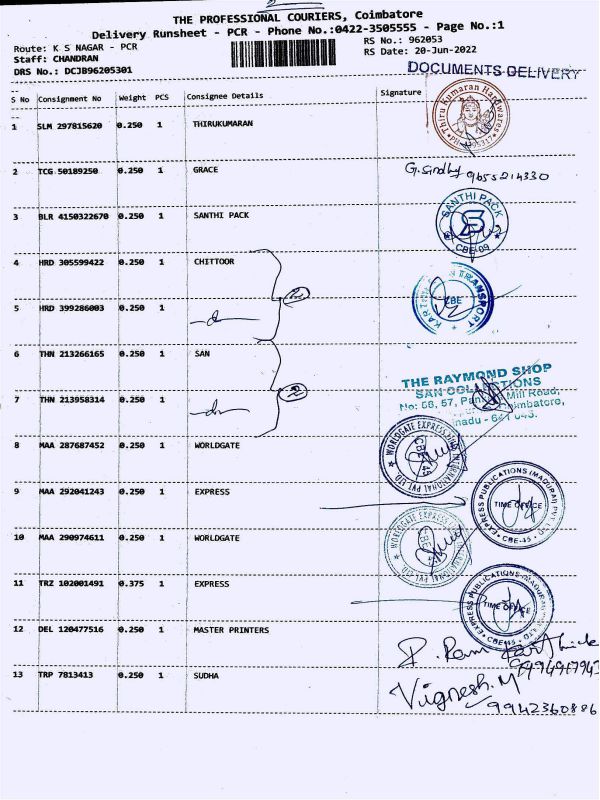 THE PROFESSIONAL COURIERS, Coimbatore
Delivery Runsheet - PCR - Phone No.:0422-3505555 - Page No.:1
Route: K S NAGAR - PCR
RS No.: 962053
Staff: CHANDRAN
RS Date: 20-Jun-2022
DRS No.: DCJB96205301
DOCUMENTS DELIVERY
S No Consignment No Weight PCS Consignee Details Signature
1 SLM 297815620 0.250 1 THIRUKUMARAN
Thiru Kumaran Hardwares
2 TCG 50189250 0.250 1 GRACE
G. Sindhy 9655214330
3 BLR 4150322670 0.250 1 SANTHI PACK
SANTHI PACK
CBE-09
4 HRD 305599422 0.250 1 CHITTOOR
TRANSPORT
CBE
5 HRD 399286003 0.250 1
6 THN 213266165 0.250 1 SAN
THE RAYMOND SHOP
7 THN 213958314 0.250 1
Mill Road,
8 MAA 287687452 0.250 1 WORLDGATE
WORLDGATE EXPRESS INTERNATIONAL PVT. LTD.
9 MAA 292041243 0.250 1 EXPRESS
EXPRESS PUBLICATIONS (MADURAI) PVT LTD
TIME OFFICE
CBE-45
10 MAA 290974611 0.250 1 WORLDGATE
WORLDGATE EXPRESS
11 TRZ 102001491 0.375 1 EXPRESS
EXPRESS PUBLICATIONS (MADURAI)
TIME OFFICE
12 DEL 120477516 0.250 1 MASTER PRINTERS
P. Ram Karthick
9994917943
13 TRP 7813413 0.250 1 SUDHA
Vignesh. M
9942360886